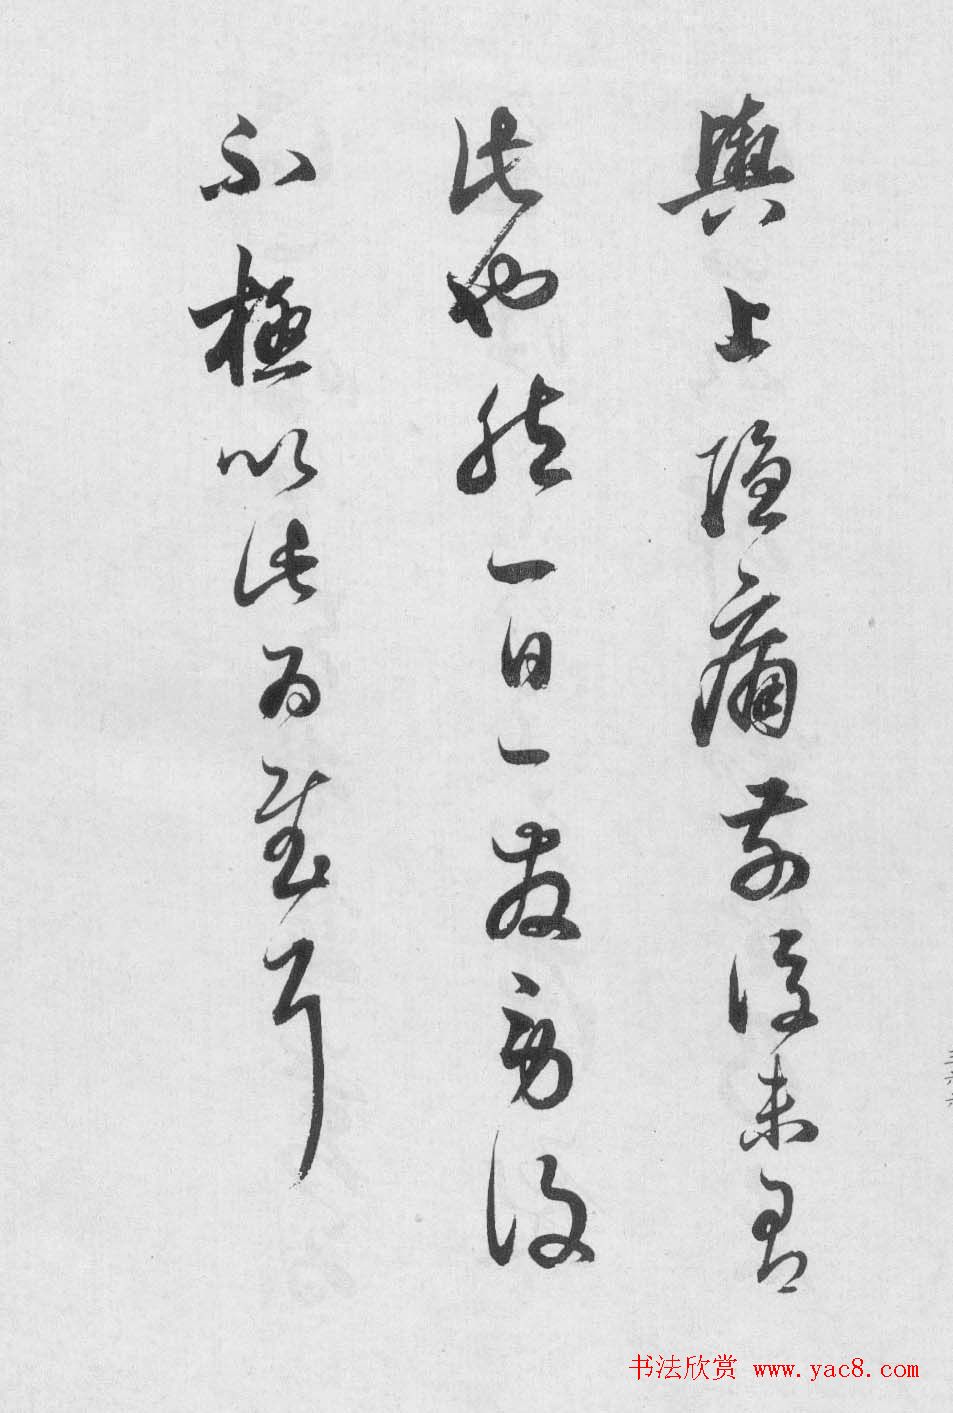 輿上隱痛前後未有
此也然一日一發勞復
不極以此為慰耳
书法欣赏 www.yac8.com